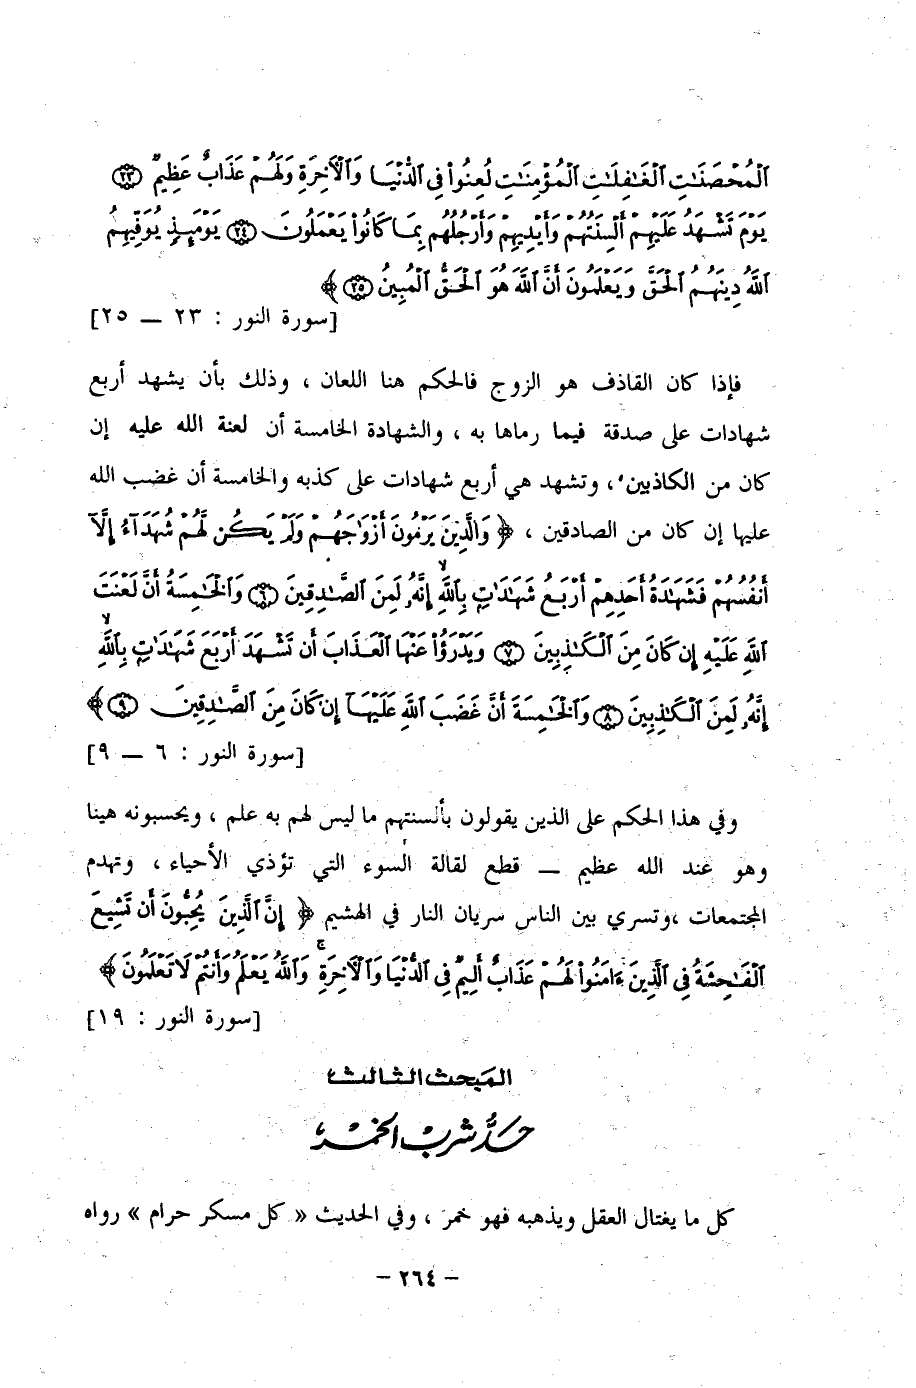 ٱلْمُحْصَنَٰتِ ٱلْغَٰفِلَٰتِ ٱلْمُؤْمِنَٰتِ لُعِنُوا۟ فِى ٱلدُّنْيَا وَٱلْءَاخِرَةِ وَلَهُمْ عَذَابٌ عَظِيمٌ ﴿٢٣﴾
يَوْمَ تَشْهَدُ عَلَيْهِمْ أَلْسِنَتُهُمْ وَأَيْدِيهِمْ وَأَرْجُلُهُم بِمَا كَانُوا۟ يَعْمَلُونَ ﴿٢٤﴾ يَوْمَئِذٍ يُوَفِّيهِمُ
ٱللَّهُ دِينَهُمُ ٱلْحَقَّ وَيَعْلَمُونَ أَنَّ ٱللَّهَ هُوَ ٱلْحَقُّ ٱلْمُبِينُ ﴿٢٥﴾ ﴾
[سورة النور : ٢٣ — ٢٥]
فإذا كان القاذف هو الزوج فالحكم هنا اللعان ، وذلك بأن يشهد أربع
شهادات على صدقة فيما رماها به ، والشهادة الخامسة أن لعنة الله عليه إن
كان من الكاذبين ، وتشهد هي أربع شهادات على كذبه والخامسة أن غضب الله
عليها إن كان من الصادقين ، ﴿ وَٱلَّذِينَ يَرْمُونَ أَزْوَٰجَهُمْ وَلَمْ يَكُن لَّهُمْ شُهَدَآءُ إِلَّآ
أَنفُسُهُمْ فَشَهَٰدَةُ أَحَدِهِمْ أَرْبَعُ شَهَٰدَٰتٍۭ بِٱللَّهِ إِنَّهُۥ لَمِنَ ٱلصَّٰدِقِينَ ﴿٦﴾ وَٱلْخَٰمِسَةُ أَنَّ لَعْنَتَ
ٱللَّهِ عَلَيْهِ إِن كَانَ مِنَ ٱلْكَٰذِبِينَ ﴿٧﴾ وَيَدْرَؤُا۟ عَنْهَا ٱلْعَذَابَ أَن تَشْهَدَ أَرْبَعَ شَهَٰدَٰتٍۭ بِٱللَّهِ
إِنَّهُۥ لَمِنَ ٱلْكَٰذِبِينَ ﴿٨﴾ وَٱلْخَٰمِسَةَ أَنَّ غَضَبَ ٱللَّهِ عَلَيْهَآ إِن كَانَ مِنَ ٱلصَّٰدِقِينَ ﴿٩﴾ ﴾
[سورة النور : ٦ — ٩]
وفي هذا الحكم على الذين يقولون بألسنتهم ما ليس لهم به علم ، ويحسبونه هينا
وهو عند الله عظيم — قطع لقالة السوء التي تؤذي الأحياء ، وتهدم
المجتمعات ،وتسري بين الناس سريان النار في الهشيم ﴿ إِنَّ ٱلَّذِينَ يُحِبُّونَ أَن تَشِيعَ
ٱلْفَٰحِشَةُ فِى ٱلَّذِينَ ءَامَنُوا۟ لَهُمْ عَذَابٌ أَلِيمٌ فِى ٱلدُّنْيَا وَٱلْءَاخِرَةِ ۚ وَٱللَّهُ يَعْلَمُ وَأَنتُمْ لَا تَعْلَمُونَ ﴾
[سورة النور : ١٩]
المبحث الثالث
حدُّ شرب الخمر
كل ما يغتال العقل ويذهبه فهو خمر ، وفي الحديث « كل مسكر حرام » رواه
– ٢٦٤ –